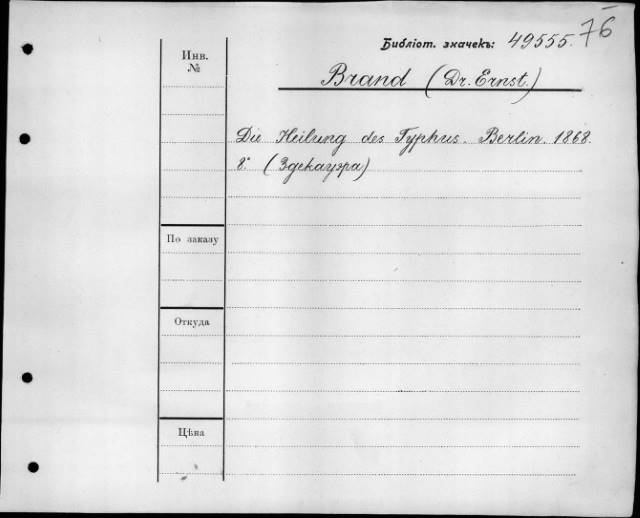 76
Библіот. значекъ: 49555.
Инв.
№
Brand (Dr. Ernst.)
Die Heilung des Typhus. Berlin. 1868.
8.° (Здекауэра)
По заказу
Откуда
Цѣна